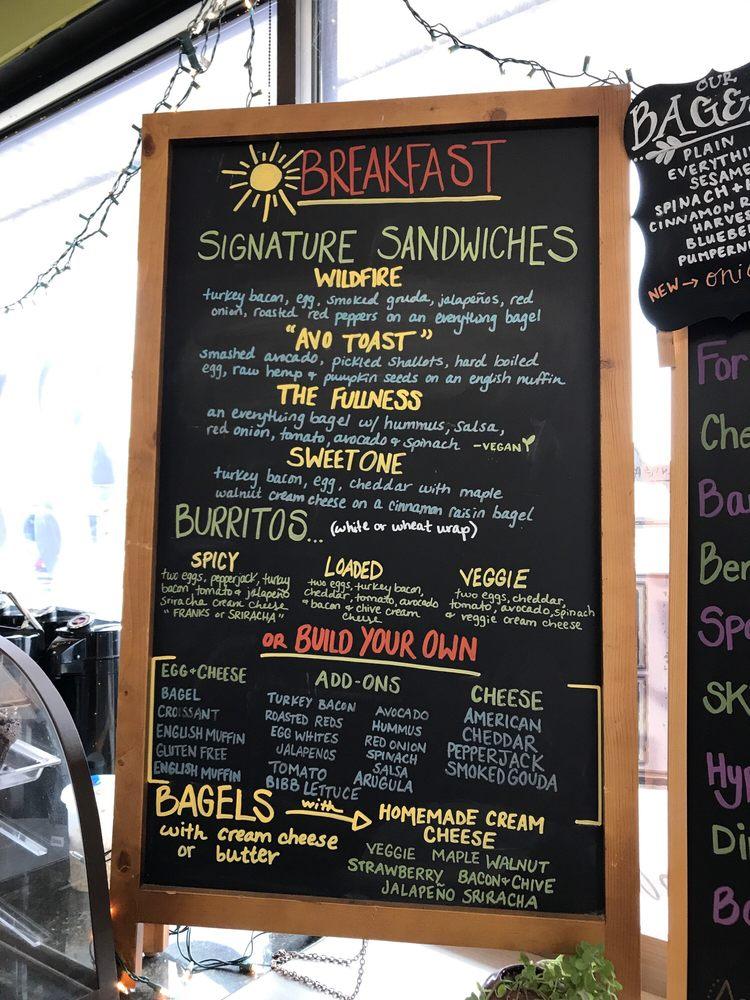 BREAKFAST
SIGNATURE SANDWICHES
WILDFIRE
turkey bacon, egg, smoked gouda, jalapeños, red
onion, roasted red peppers on an everything bagel
"AVO TOAST"
smashed avocado, pickled shallots, hard boiled
egg, raw hemp & pumpkin seeds on an english muffin
THE FULLNESS
an everything bagel w/ hummus, salsa,
red onion, tomato, avocado & spinach -VEGAN
SWEET ONE
turkey bacon, egg, cheddar with maple
walnut cream cheese on a cinnamon raisin bagel
BURRITOS... (white or wheat wrap)
SPICY
two eggs, pepperjack, turkey
bacon, tomato & jalapeño
Sriracha cream cheese
"FRANKS or SRIRACHA"
LOADED
two eggs, turkey bacon,
cheddar, tomato, avocado
& bacon & chive cream
cheese
VEGGIE
two eggs, cheddar,
tomato, avocado, spinach
& veggie cream cheese
OR BUILD YOUR OWN
EGG & CHEESE
BAGEL
CROISSANT
ENGLISH MUFFIN
GLUTEN FREE
ENGLISH MUFFIN
ADD-ONS
TURKEY BACON
ROASTED REDS
EGG WHITES
JALAPENOS
TOMATO
BIBB LETTUCE
AVOCADO
HUMMUS
RED ONION
SPINACH
SALSA
ARUGULA
CHEESE
AMERICAN
CHEDDAR
PEPPERJACK
SMOKED GOUDA
BAGELS with
with cream cheese
or butter
HOMEMADE CREAM
CHEESE
VEGGIE MAPLE WALNUT
STRAWBERRY BACON & CHIVE
JALAPEÑO SRIRACHA
OUR
BAGE
PLAIN
EVERYTHI
SESAME
SPINACH +
CINNAMON R
HARVES
BLUEBER
PUMPERN
NEW → onio
For
Che
Ba
Ber
Spe
SK
Hyp
Di
Bo